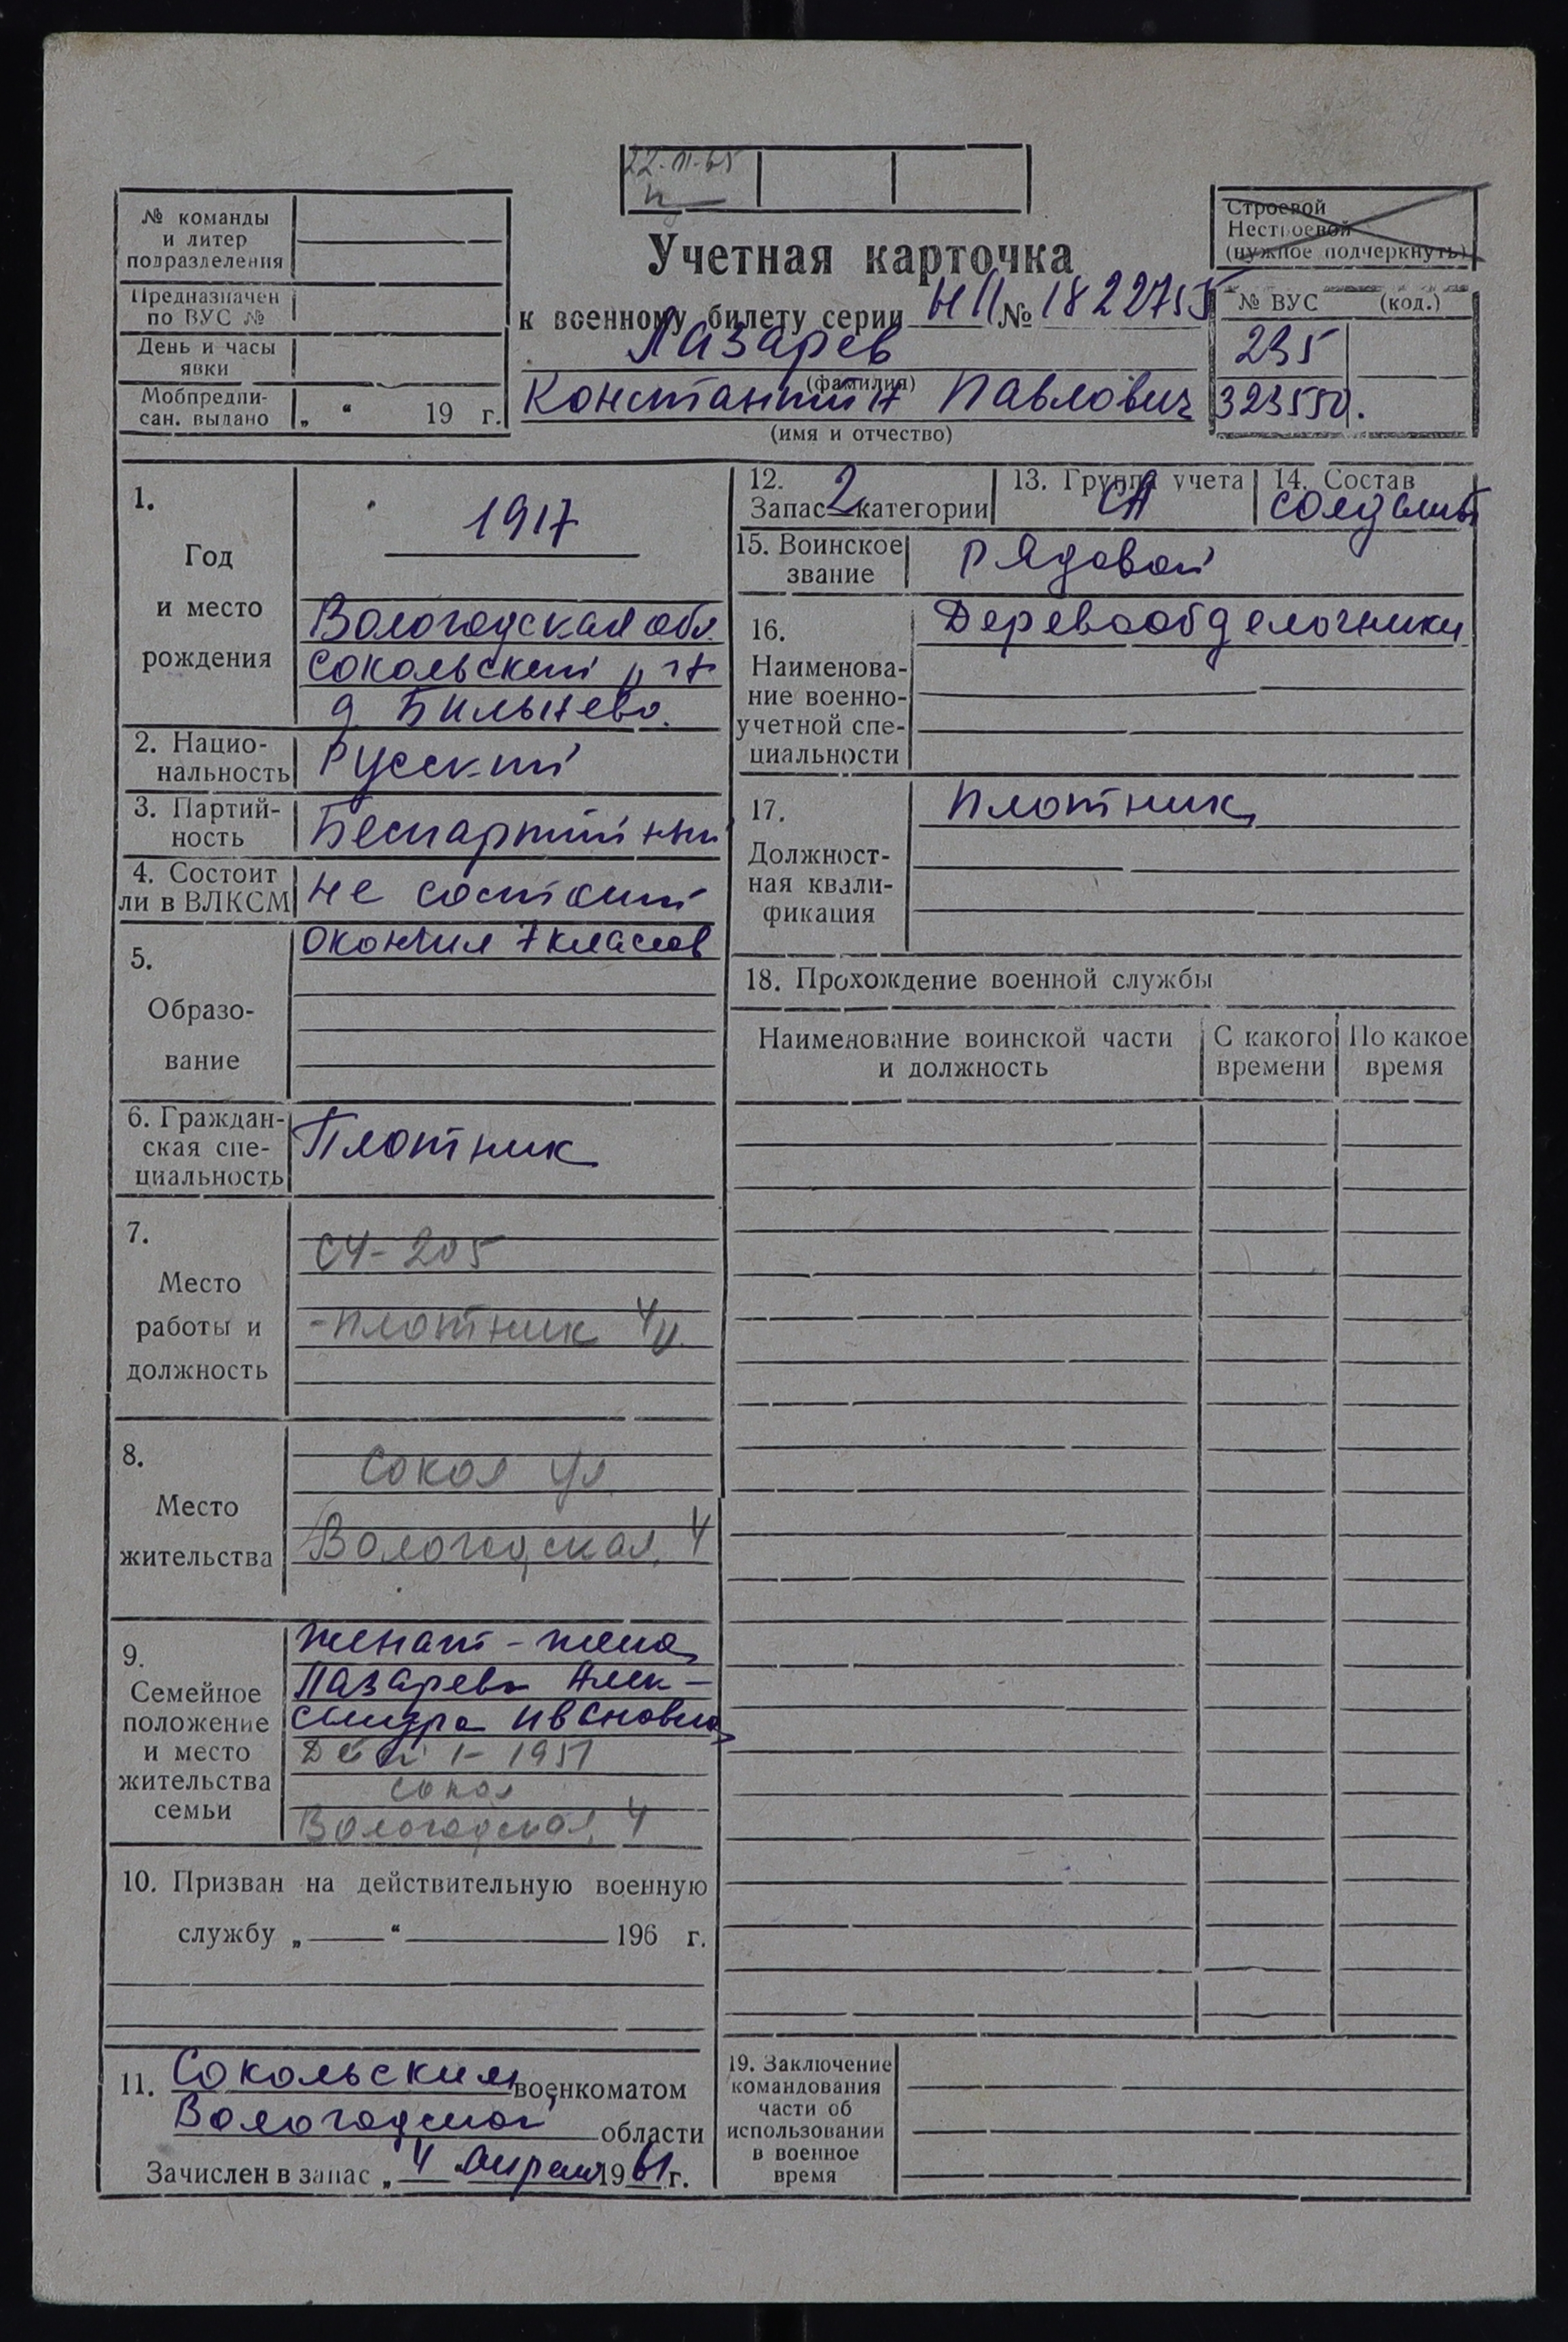 22-11-65
№ команды
и литер
подразделения
Предназначен
по ВУС №
День и часы
явки
Мобпредпи-
сан. выдано „ “ 19 г.
Учетная карточка
к военному билету серии НП № 1822755
Лазарев
(фамилия)
Константин Павлович
(имя и отчество)
Строевой
Нестроевой
(нужное подчеркнуть)
№ ВУС (код.)
235
323550.
1.
Год
и место
рождения
1917
Вологодская обл.
Сокольский р-н
д Бильнево.
2. Нацио-
нальность
Русский
3. Партий-
ность
Беспартийный
4. Состоит
ли в ВЛКСМ
не состоит
5.
Образо-
вание
окончил 7 классов
6. Граждан-
ская спе-
циальность
Плотник
7.
Место
работы и
должность
СУ-205
-плотник
8.
Место
жительства
Сокол ул.
Вологодская, 4
9.
Семейное
положение
и место
жительства
семьи
женат - жена
Лазарева Алек-
сандра Ивановна
Дети 1- 1951
Сокол
Вологодская, 4
10. Призван на действительную военную
службу „ “ 196 г.
11. Сокольским военкоматом
Вологодской области
Зачислен в запас „4 апреля 1961 г.
12.
Запас 2 категории
13. Группа учета
СА
14. Состав
солдаты
15. Воинское
звание
Рядовой
16.
Наименова-
ние военно-
учетной спе-
циальности
Деревообделочники
17.
Должност-
ная квали-
фикация
Плотник
18. Прохождение военной службы
Наименование воинской части
и должность
С какого
времени
По какое
время
19. Заключение
командования
части об
использовании
в военное
время